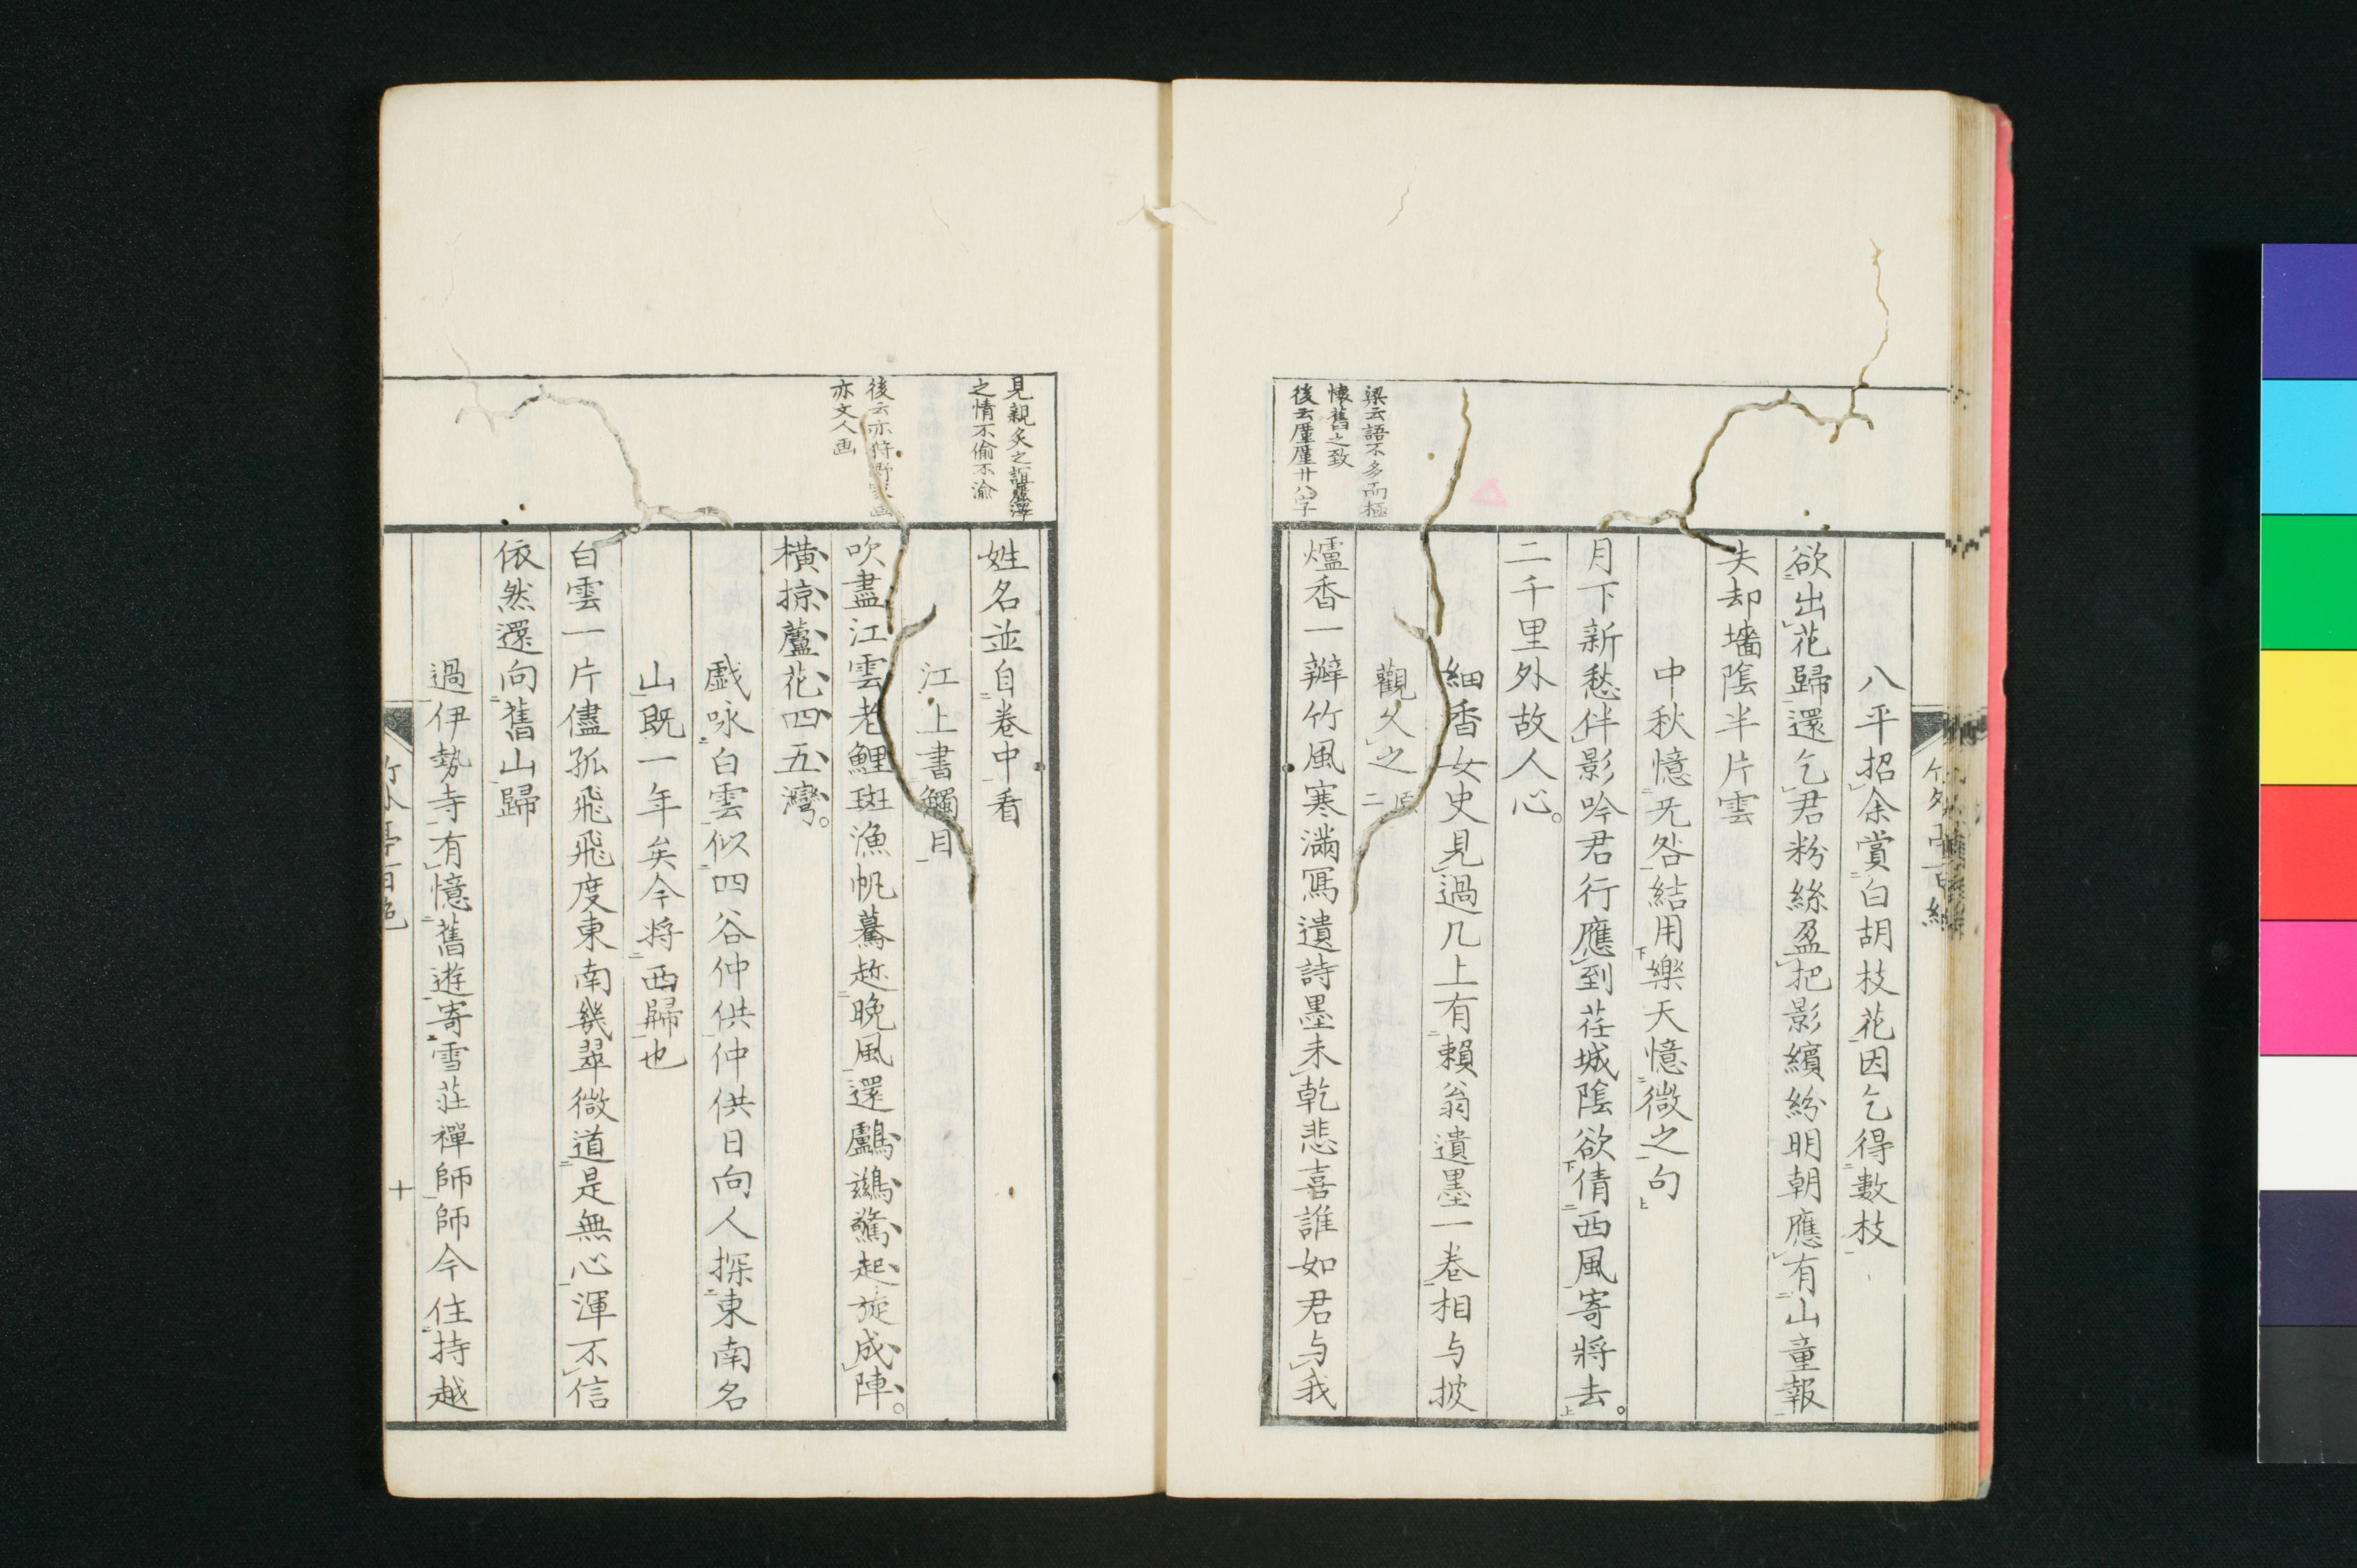 八平招余賞白胡枝花因乞得數枝
欲出花歸還乞君粉絲盈把影繽紛明朝應有山童報
失却墻陰半片雲
中秋憶旡咎結用樂天憶微之句
月下新愁伴影吟君行應到荏城陰欲倩西風寄將去
二千里外故人心
梁云語不多而極
懷舊之致
後云廑廑廿八字
細香女史見過几上有賴翁遺墨一卷相与披
觀久之
爐香一瓣竹風寒滿寫遺詩墨未乾悲喜誰如君与我
見親炙之誼
之情不偷不渝
姓名並自卷中看
江上書觸目
後云亦狩野家画
亦文人画
吹盡江雲老鯉斑漁帆驀趂晩風還鸕鷀驚起旋成陣
横掠蘆花四五灣
戯咏白雲似四谷仲供仲供日向人探東南名
山既一年矣今将西歸也
白雲一片儘孤飛飛度東南幾翠微道是無心渾不信
依然還向舊山歸
過伊勢寺有憶舊遊寄雪荘禪師師今住持越
十